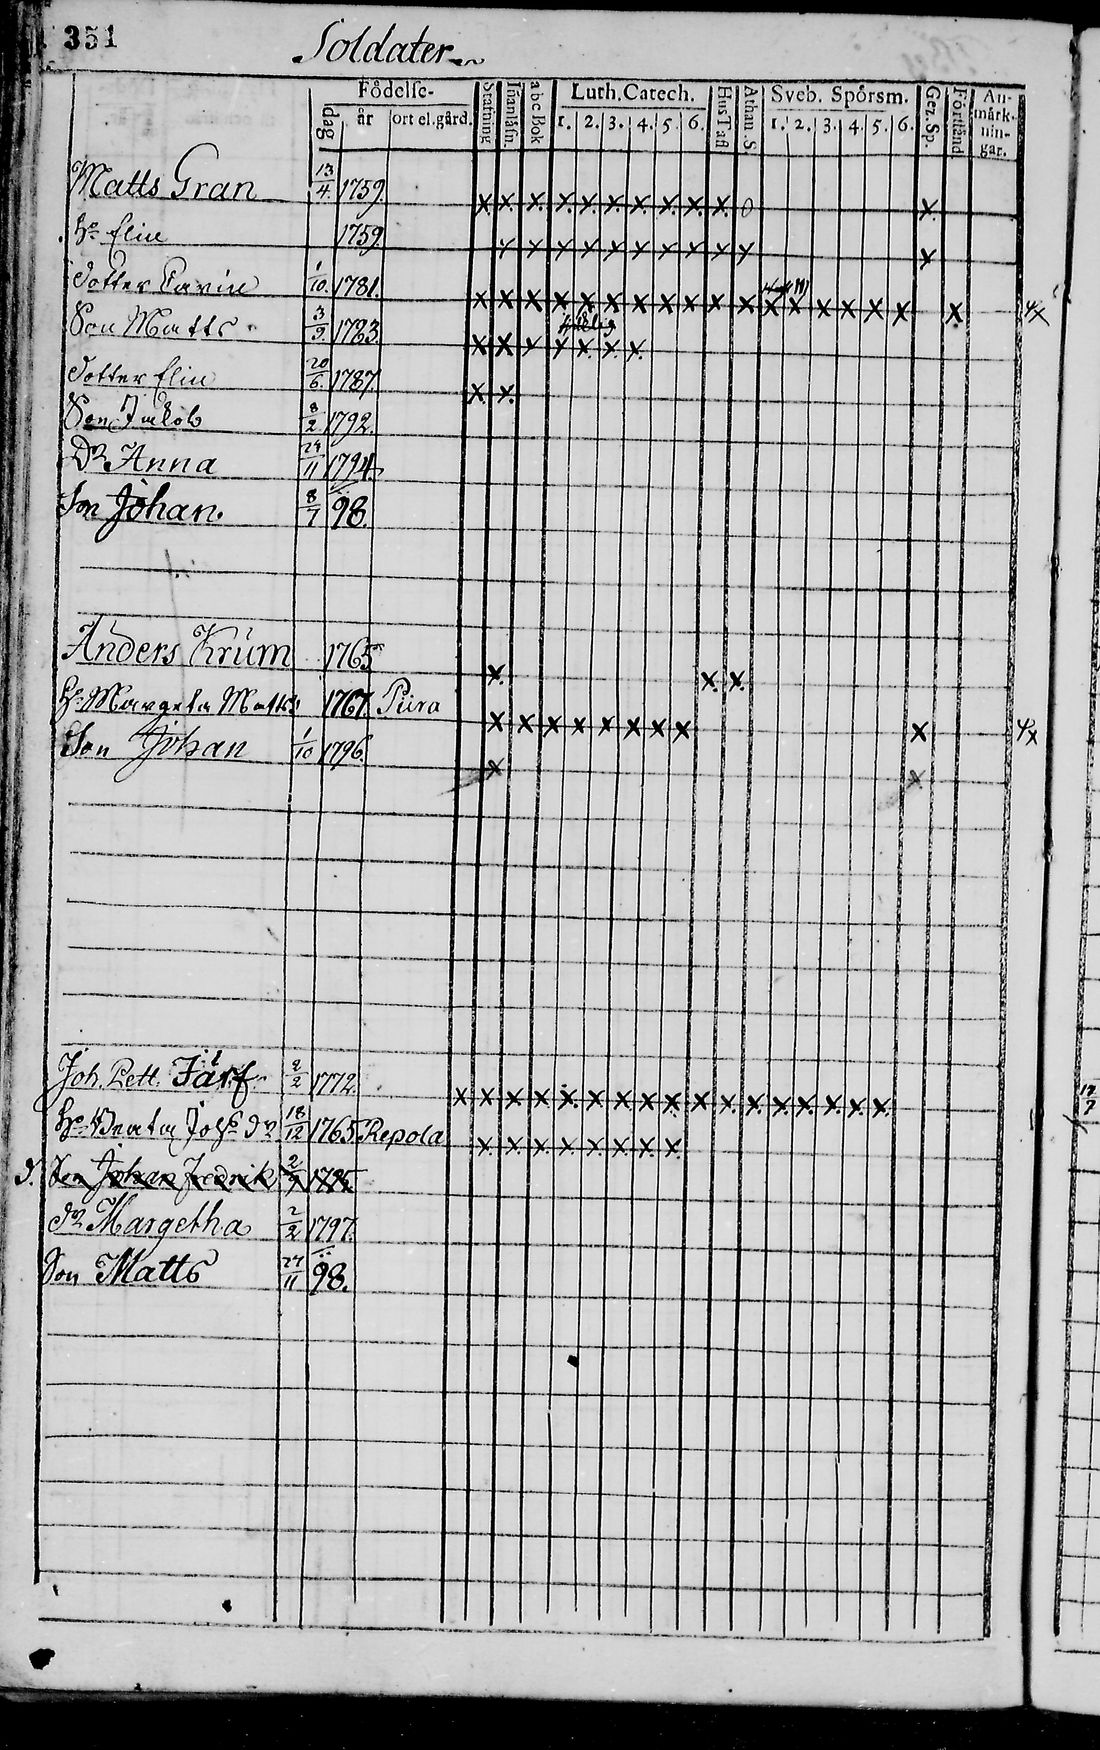 351
Soldater
Födelse-
dag år ort el. gård. Stafning Inanläsn. abc Bok Luth. Catech. 1. 2. 3. 4. 5. 6. Hus Tafl Athan. S. Sveb. Spörsm. 1. 2. 3. 4. 5. 6. Gez. Sp. Förstånd An-
märk-
nin-
gar.
Matts Gran 13/4. 1759. x x. x. x. x. x. x. x. x. x. 0 x.
Hu Elin 1759 x x x x x x x x x x x
Dotter Carin 1/10. 1781. x x x x x x x x x x x x x x x x x x 4/x
Son Matts 3/9. 1783. x x x x x. x x.
Dotter Elin 20/6. 1787 x x.
Son Jakob 8/2 1792.
Dr Anna 24/11 1794.
Son Johan. 8/7 98.
Anders Krum 1765 x. x. x.
Hu Margeta Matts 1767. Piira x x x x x x x x x 4/x
Son Johan 1/10 1796. x x
Joh. Pett. Färf 2/2 1772. x x x x x. x x x x x x. x x. x. x. x. x.
Hu Beata Johs dr 18/12 1765 Repola x. x. x. x. x. x. x. x.
d. Son Johan Fredrik 2/9 1785.
dr Margetha 2/2 1797.
Son Matts 27/11 98.
17/7